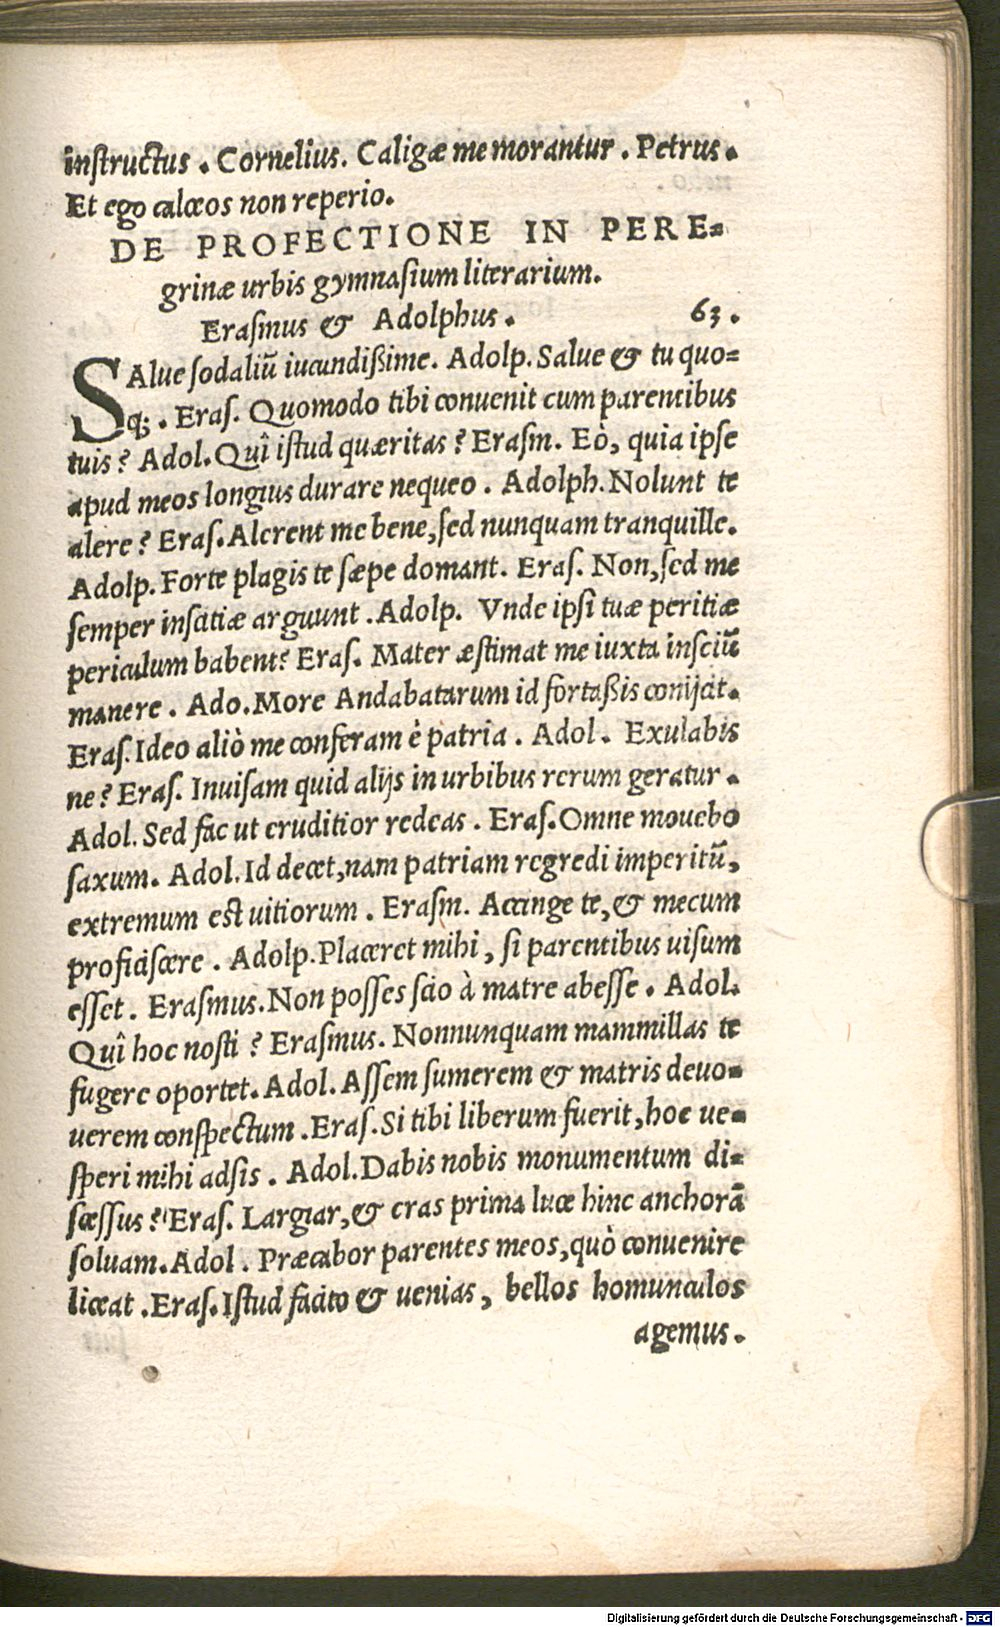 inſtructus . Cornelius. Caligæ memorantur . Petrus.
Et ego calceos non reperio.
DE PROFECTIONE IN PERE-
grinæ urbis gymnaſium literarium.
Eraſmus & Adolphus. 63.
SAlue ſodaliũ iucundißime. Adolp. Salue & tu quo-
q;. Eraſ. Quomodo tibi conuenit cum parentibus
tuis? Adol. Quî iſtud quæritas? Eraſm. Eò, quia ipſe
apud meos longius durare nequeo. Adolph. Nolunt te
alere? Eraſ. Alerent me bene, ſed nunquam tranquille.
Adolp. Forte plagis te ſæpe domant. Eraſ. Non, ſed me
ſemper inſcitiæ arguunt. Adolp. Vnde ipſi tuæ peritiæ
periculum habent? Eraſ. Mater æſtimat me iuxta inſciũ
manere. Ado. More Andabatarum id fortaßis conijcit.
Eraſ. Ideo aliò me conferam è patria. Adol. Exulabis
ne? Eraſ. Inuiſam quid alijs in urbibus rerum geratur.
Adol. Sed fac ut eruditior redeas. Eraſ. Omne mouebo
ſaxum. Adol. Id decet, nam patriam regredi imperitũ,
extremum eſt uitiorum. Eraſm. Accinge te, & mecum
proficiſcere. Adolp. Placeret mihi, ſi parentibus uiſum
eſſet. Eraſmus. Non poſſes ſcio à matre abeſſe. Adol.
Quî hoc noſti? Eraſmus. Nonnunquam mammillas te
ſugere oportet. Adol. Aſſem ſumerem & matris deuo-
uerem conſpectum. Eraſ. Si tibi liberum fuerit, hoc ue-
ſperi mihi adſis. Adol. Dabis nobis monumentum di-
ſceſſus? Eraſ. Largiar, & cras prima luce hinc anchorã
ſoluam. Adol. Præcabor parentes meos, quò conuenire
liceat. Eraſ. Iſtud facito & uenias, bellos homunculos
agemus.
Digitalisierung gefördert durch die Deutsche Forschungsgemeinschaft - DFG